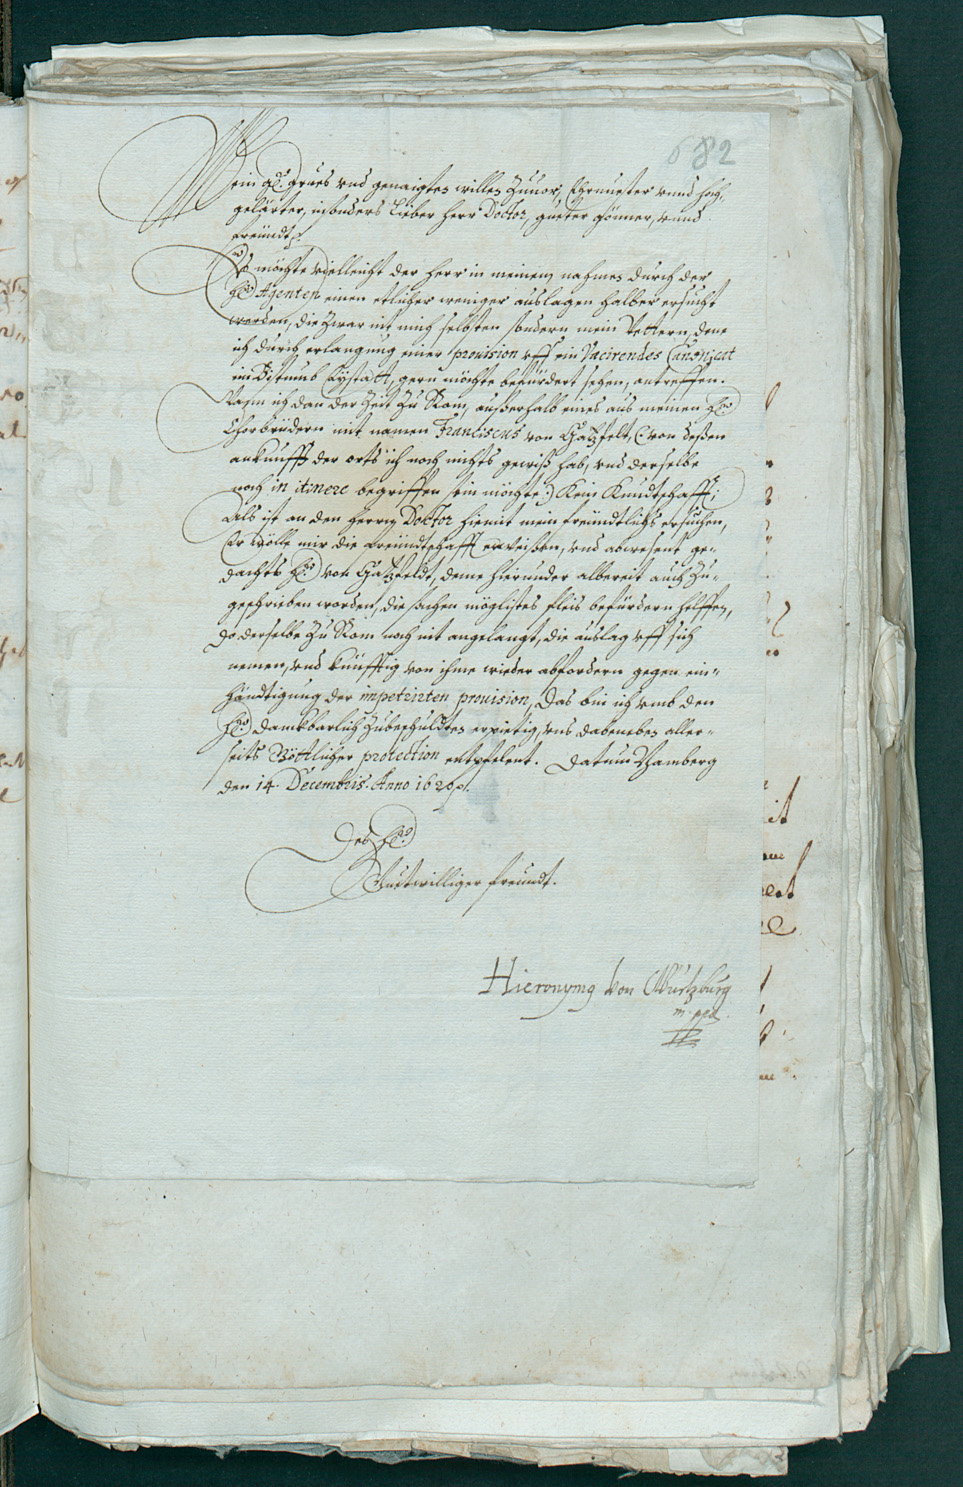 682
Mein gd. grues vnd genaigten willen Zuuor, Ehrnuester vnnd hoch-
gelärter, insonders Lieber herr Doctor, gueter gönner, vnnd
freündt.
Es möchte vielleicht der herr in meinem nahmen durch der
hr. Agenten einen etlicher weniger auslagen halber ersucht
werden, die zwar nit mich selbsten sondern mein Vettern, deme
ich durch erlangung einer prouision vff ein Vacirendes Canonicat
im Bistumb Eystätt, gern möchte befürdert sehen, antreffen.
Wann ich dan der Zeit zu Rom, außerhalb eines aus meinen hr.
Chorbrüdern mit namen Franciscus von Hatzfelt, (von deßen
ankunfft der orts ich noch nichts gewiß hab, vnd derselbe
noch in itinere begriffen sein möchte:) Kein Kundtschafft;
Als ist an den herrn Doctor hiemit mein freündtlichs ersuchen,
Er wölle mir die freündtschafft erweißen, vnd abwesent ge-
dachts hr. von Hatzfeldt, deme hierunder albereit auch zu-
geschrieben worden, die sachen möglistes fleis befürdern helffen,
do derselbe zu Rom noch nit angelangt, die auslag vff sich
nemen, vnd künfftig von ihme wieder abfordern gegen ein-
händtigung der impetrirten prouision, Das bin ich vmb den
hr. danckbarlich zubeschulden erpietig, vns dabeneben aller-
seits Göttlicher protection entpfelent. Datum Bamberg
den 14. Decembris. Anno 1620.
Des hr.
Guetwilliger freundt.
Hieronymg von Würtzburg
m. ppa